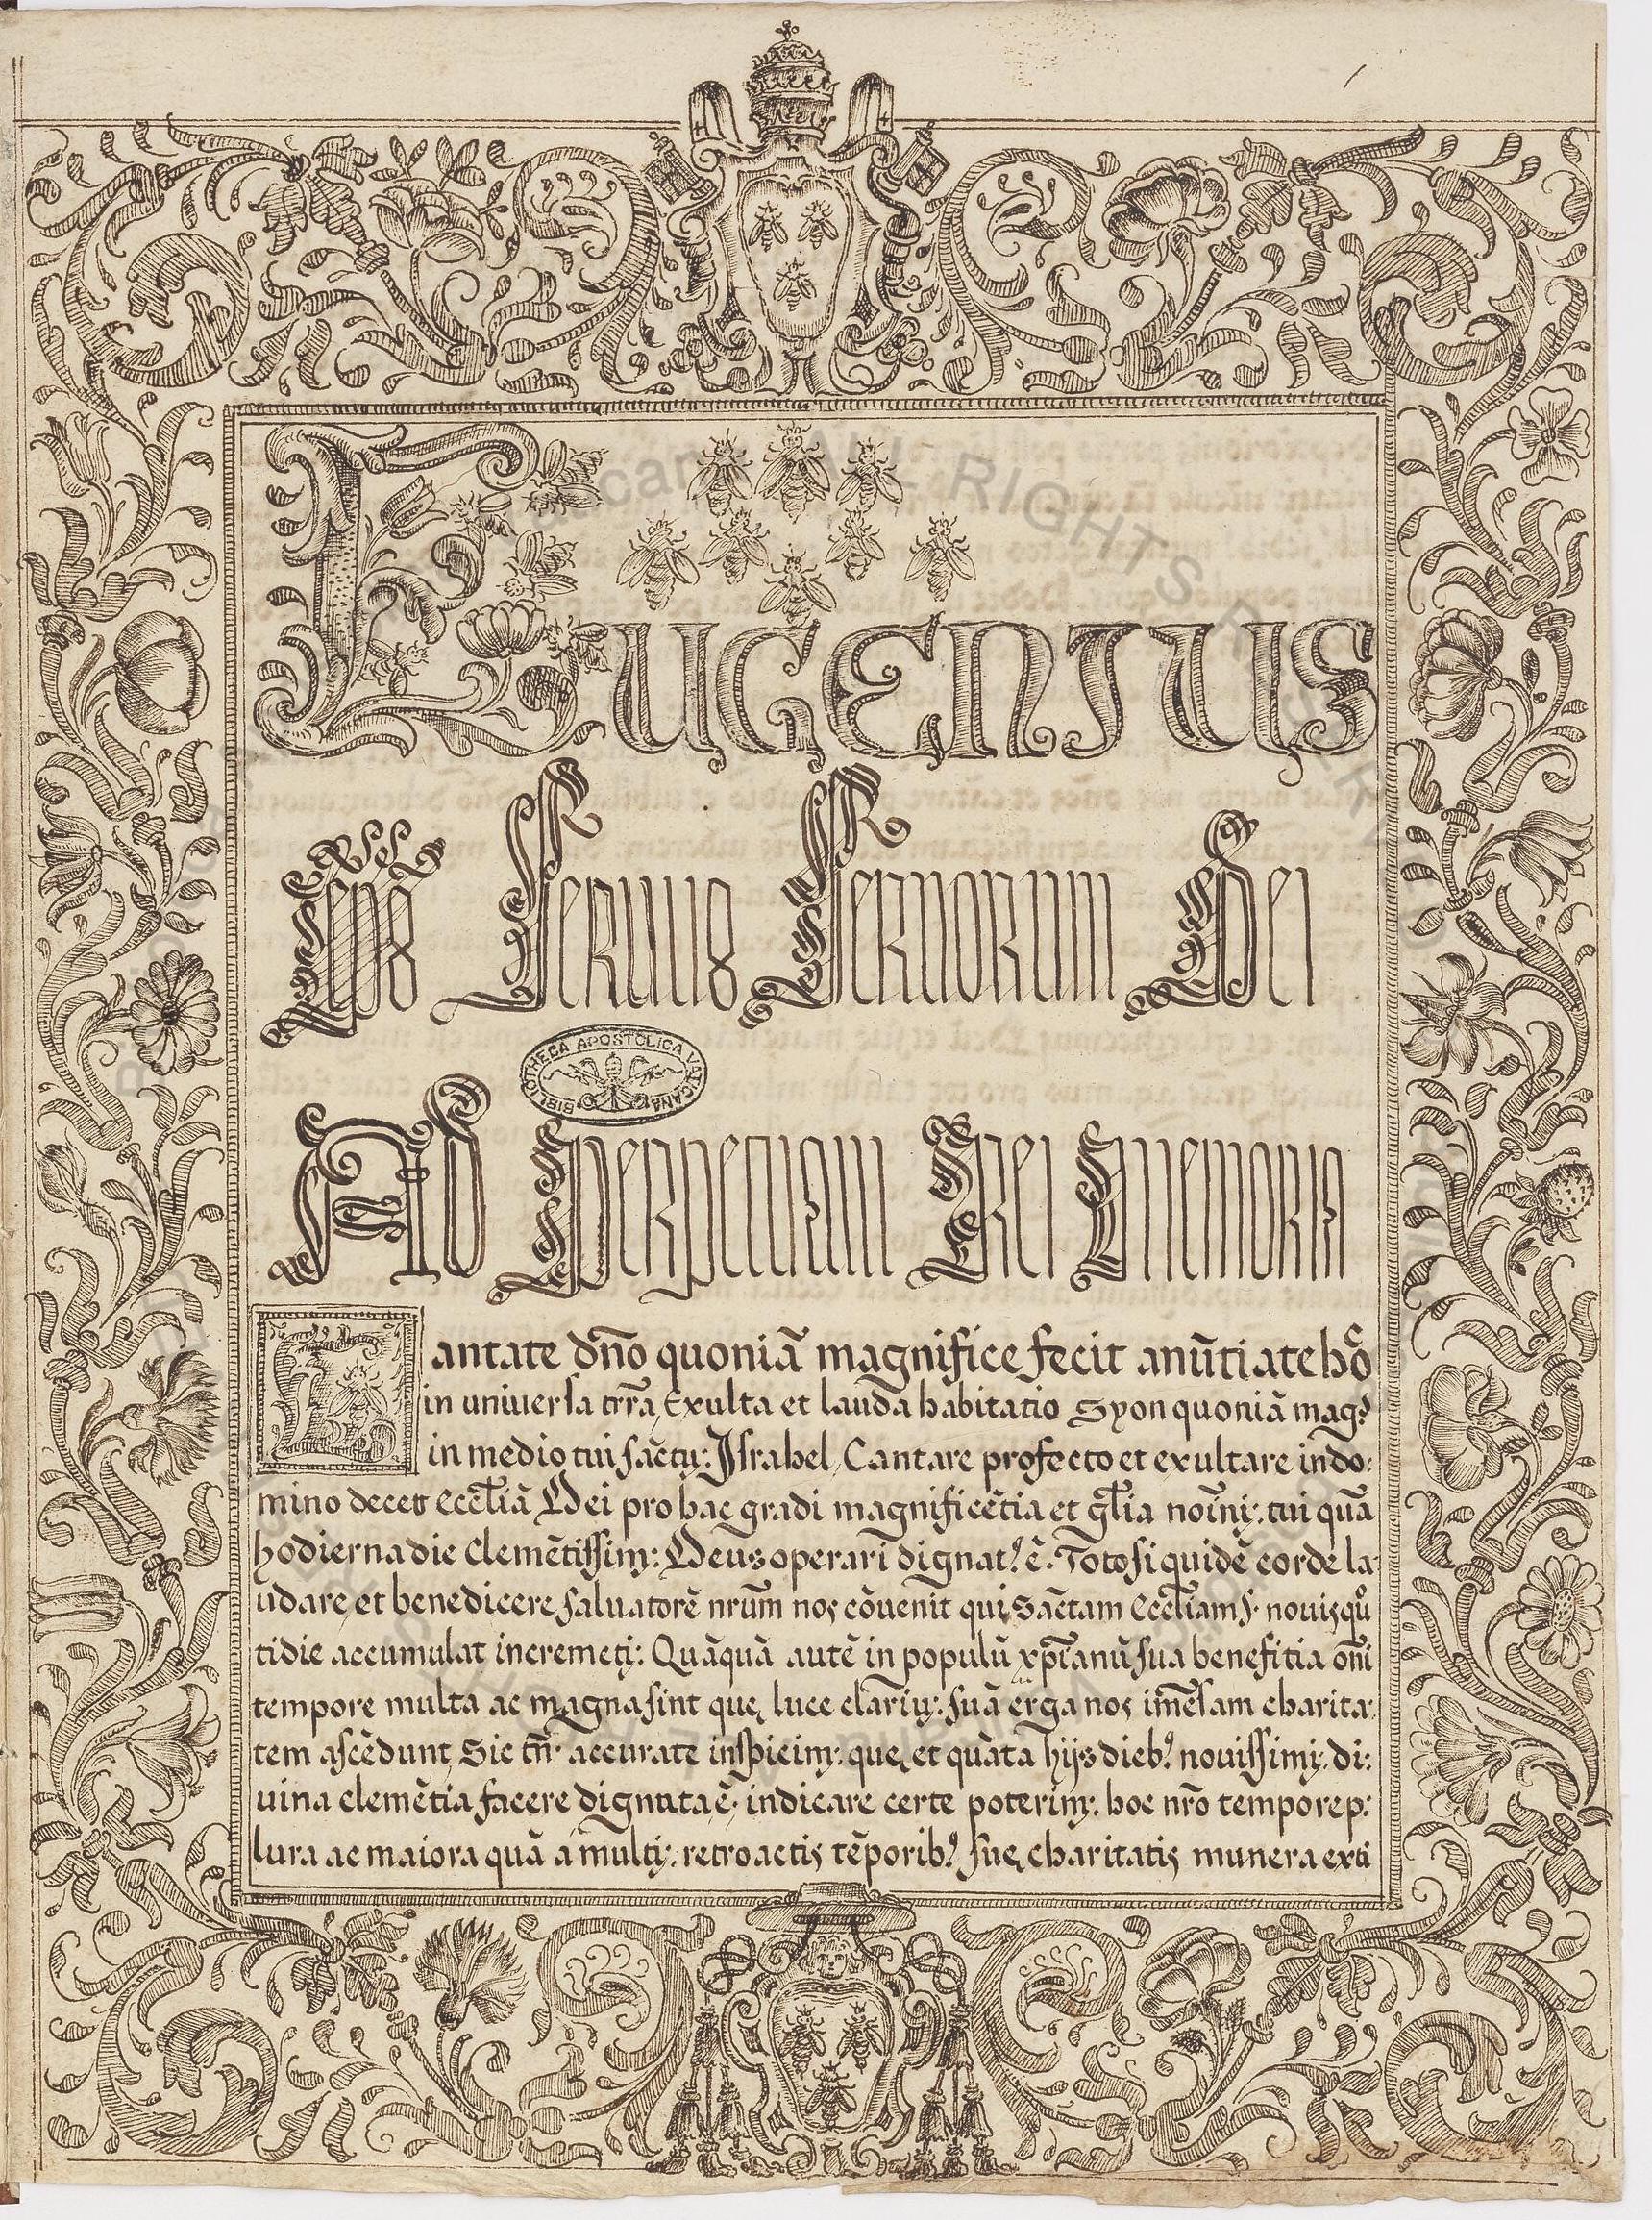 Eugenius
Eps Seruus Seruorum Dei
BIBLIOTHECA APOSTOLICA VATICANA
Ad Perpetuam Rei Memoria
Cantate dn̄o quoniā magnifice fecit anūtiate hoc
in uniuersa trr̄a, Exulta et lauda habitatio Syon quoniā mag⁹
in medio tui sāctꝰ: Israhel, Cantare profecto et exultare in do:
mino decet eccl̄iā Dei pro hac gradi magnificētia et gl̄ia noīnꝰ: tui quā
hodierna die Clemētissimꝰ: Deus operari dignatꝰ ē. Toto siquidē corde la:
udare, et benedicere saluatorē nrūm nos cōuenit qui, Sāctam Eccl̄iam s. nouis quo
tidie accumulat incremetꝰ: Quāquā autē in populū xpīanū sua benefitia oīni
tempore multa ac magna sint quę luce clariꝰ: suā erga nos im̄ēsam charita:
tem ascēdunt, Sic tn̄ accurate inspicimꝰ: quę, et quāta hijs diebꝰ nouissimꝰ: di:
uina clemētia facere dignatata ē, indicare certe poterimꝰ: hoc nrō tempore p:
lura ac maiora quā a multꝰ: retroactis tēporibꝰ suę charitatis munera exti